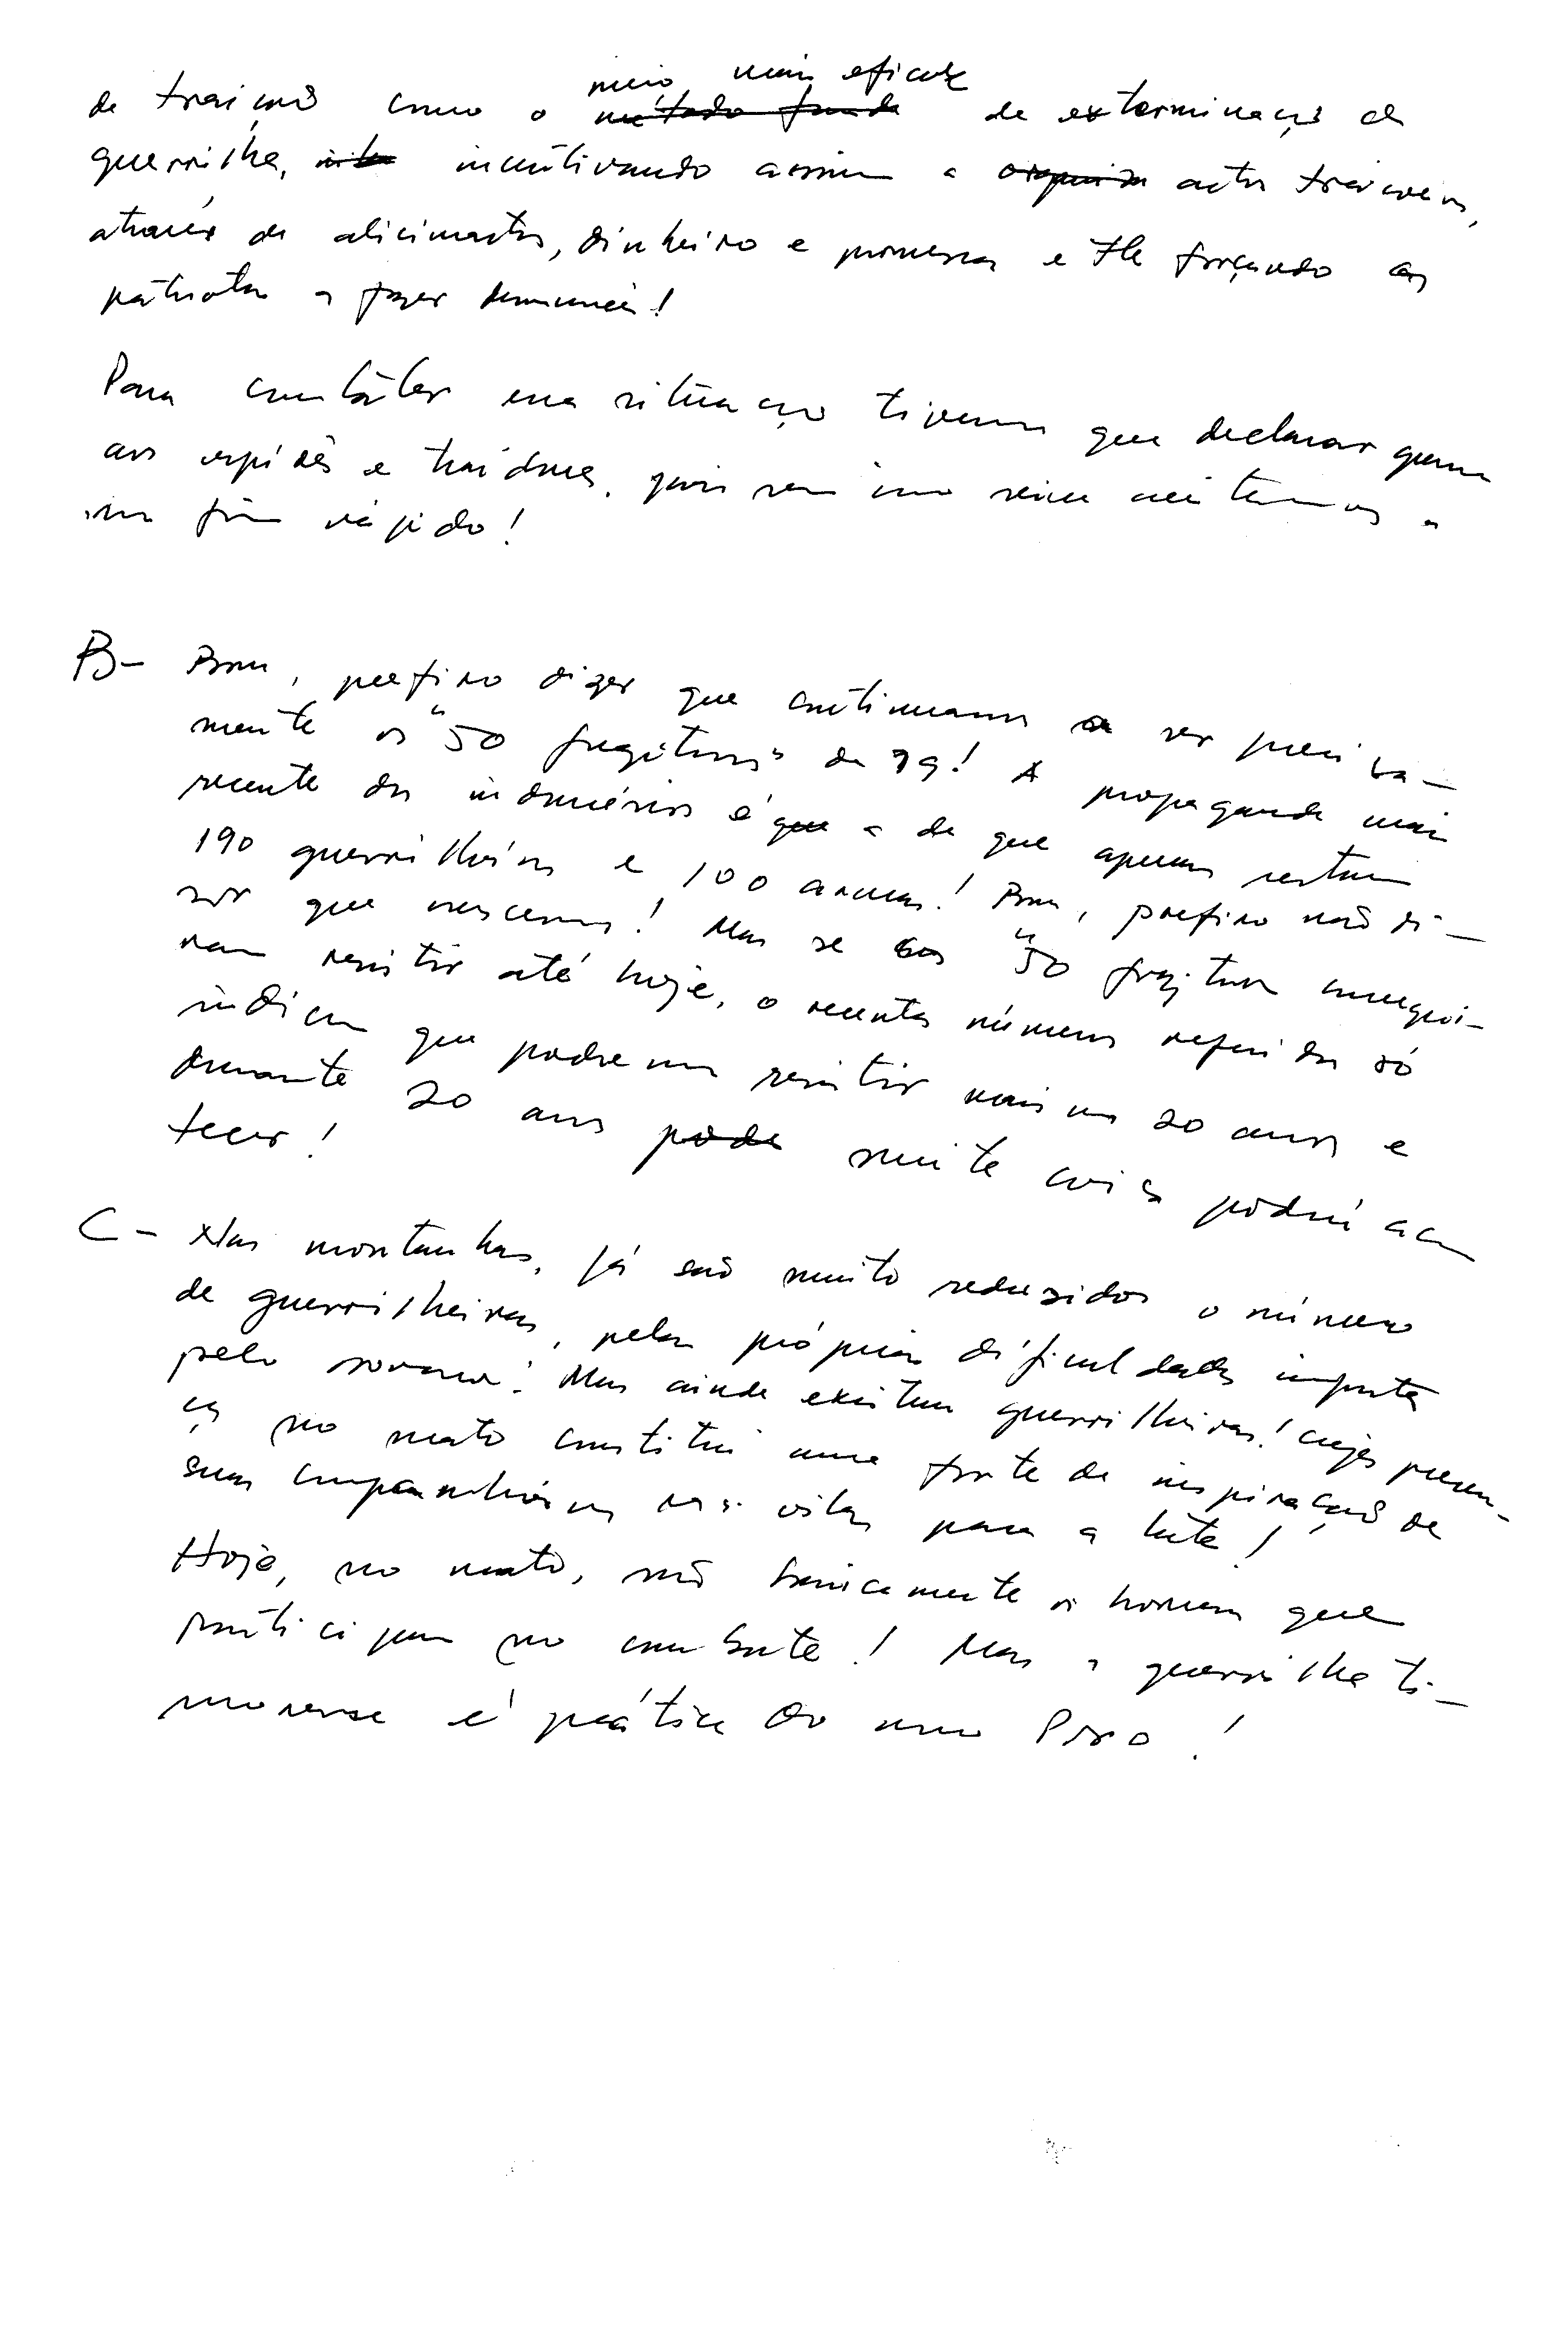 meio mais eficaz
de traição como o método funda de exterminação da
guerrilha, incentivando assim a actos traiçoeiros,
através de aliciamentos, dinheiro e promessas e forçando os
patriotas a fazer denúncias!
Para combater essa situação tivemos que declarar guerra
aos espiões e traidores, pois sem isso seria aceitarmos a
um fim rápido!
B- Bom, prefiro dizer que continuamos a ser precisa-
mente os "50 fugitivos" de 79! A propaganda mais
recente dos indonésios é que a de que apenas restam
190 guerrilheiros e 100 armas! Bom, prefiro não di-
zer que crescemos! Mas se os "50 fugitivos consegui-
ram resistir até hoje, o recentes números referidos só
indicam que podremos resistir mais uns 20 anos e
durante 20 anos pode muita coisa poderá acon
tecer!
C- Nas montanhas, já são muito reduzidos o número
de guerrilheiras, pelas próprias dificuldades impostas
pelo Mas ainde existem guerrilheiras! cujas presen-
ça no mato constitui uma fonte de inspiração de
suas companheiras nas vilas para a luta!
Hoje, no mato, são basicamente os homens que
participam no combate! Mas a guerrilha ti-
morense é prática do nosso Povo!